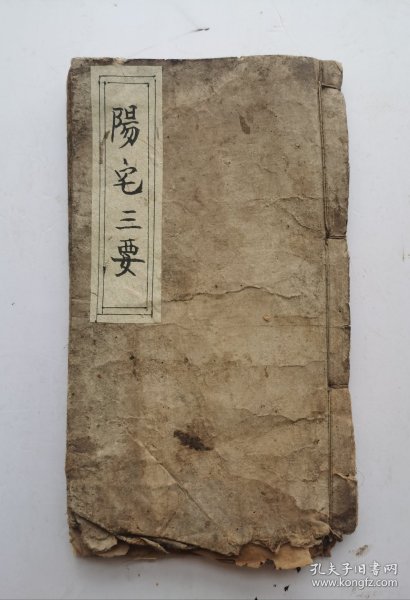 陽宅三要
孔夫子旧书网
www.kongfz.com